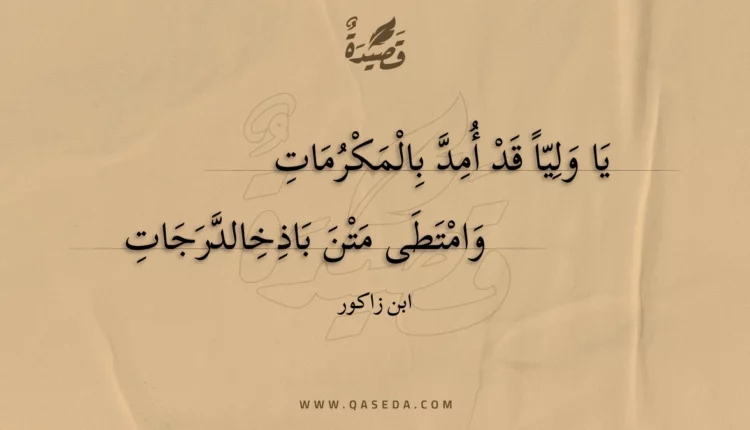 قَصِيدَةٌ
يَا وَلِيّاً قَدْ أُمِدَّ بِالْمَكْرُمَاتِ
وَامْتَطَى مَتْنَ بَاذِخِالدَّرَجَاتِ
ابن زاكور
WWW.QASEDA.COM